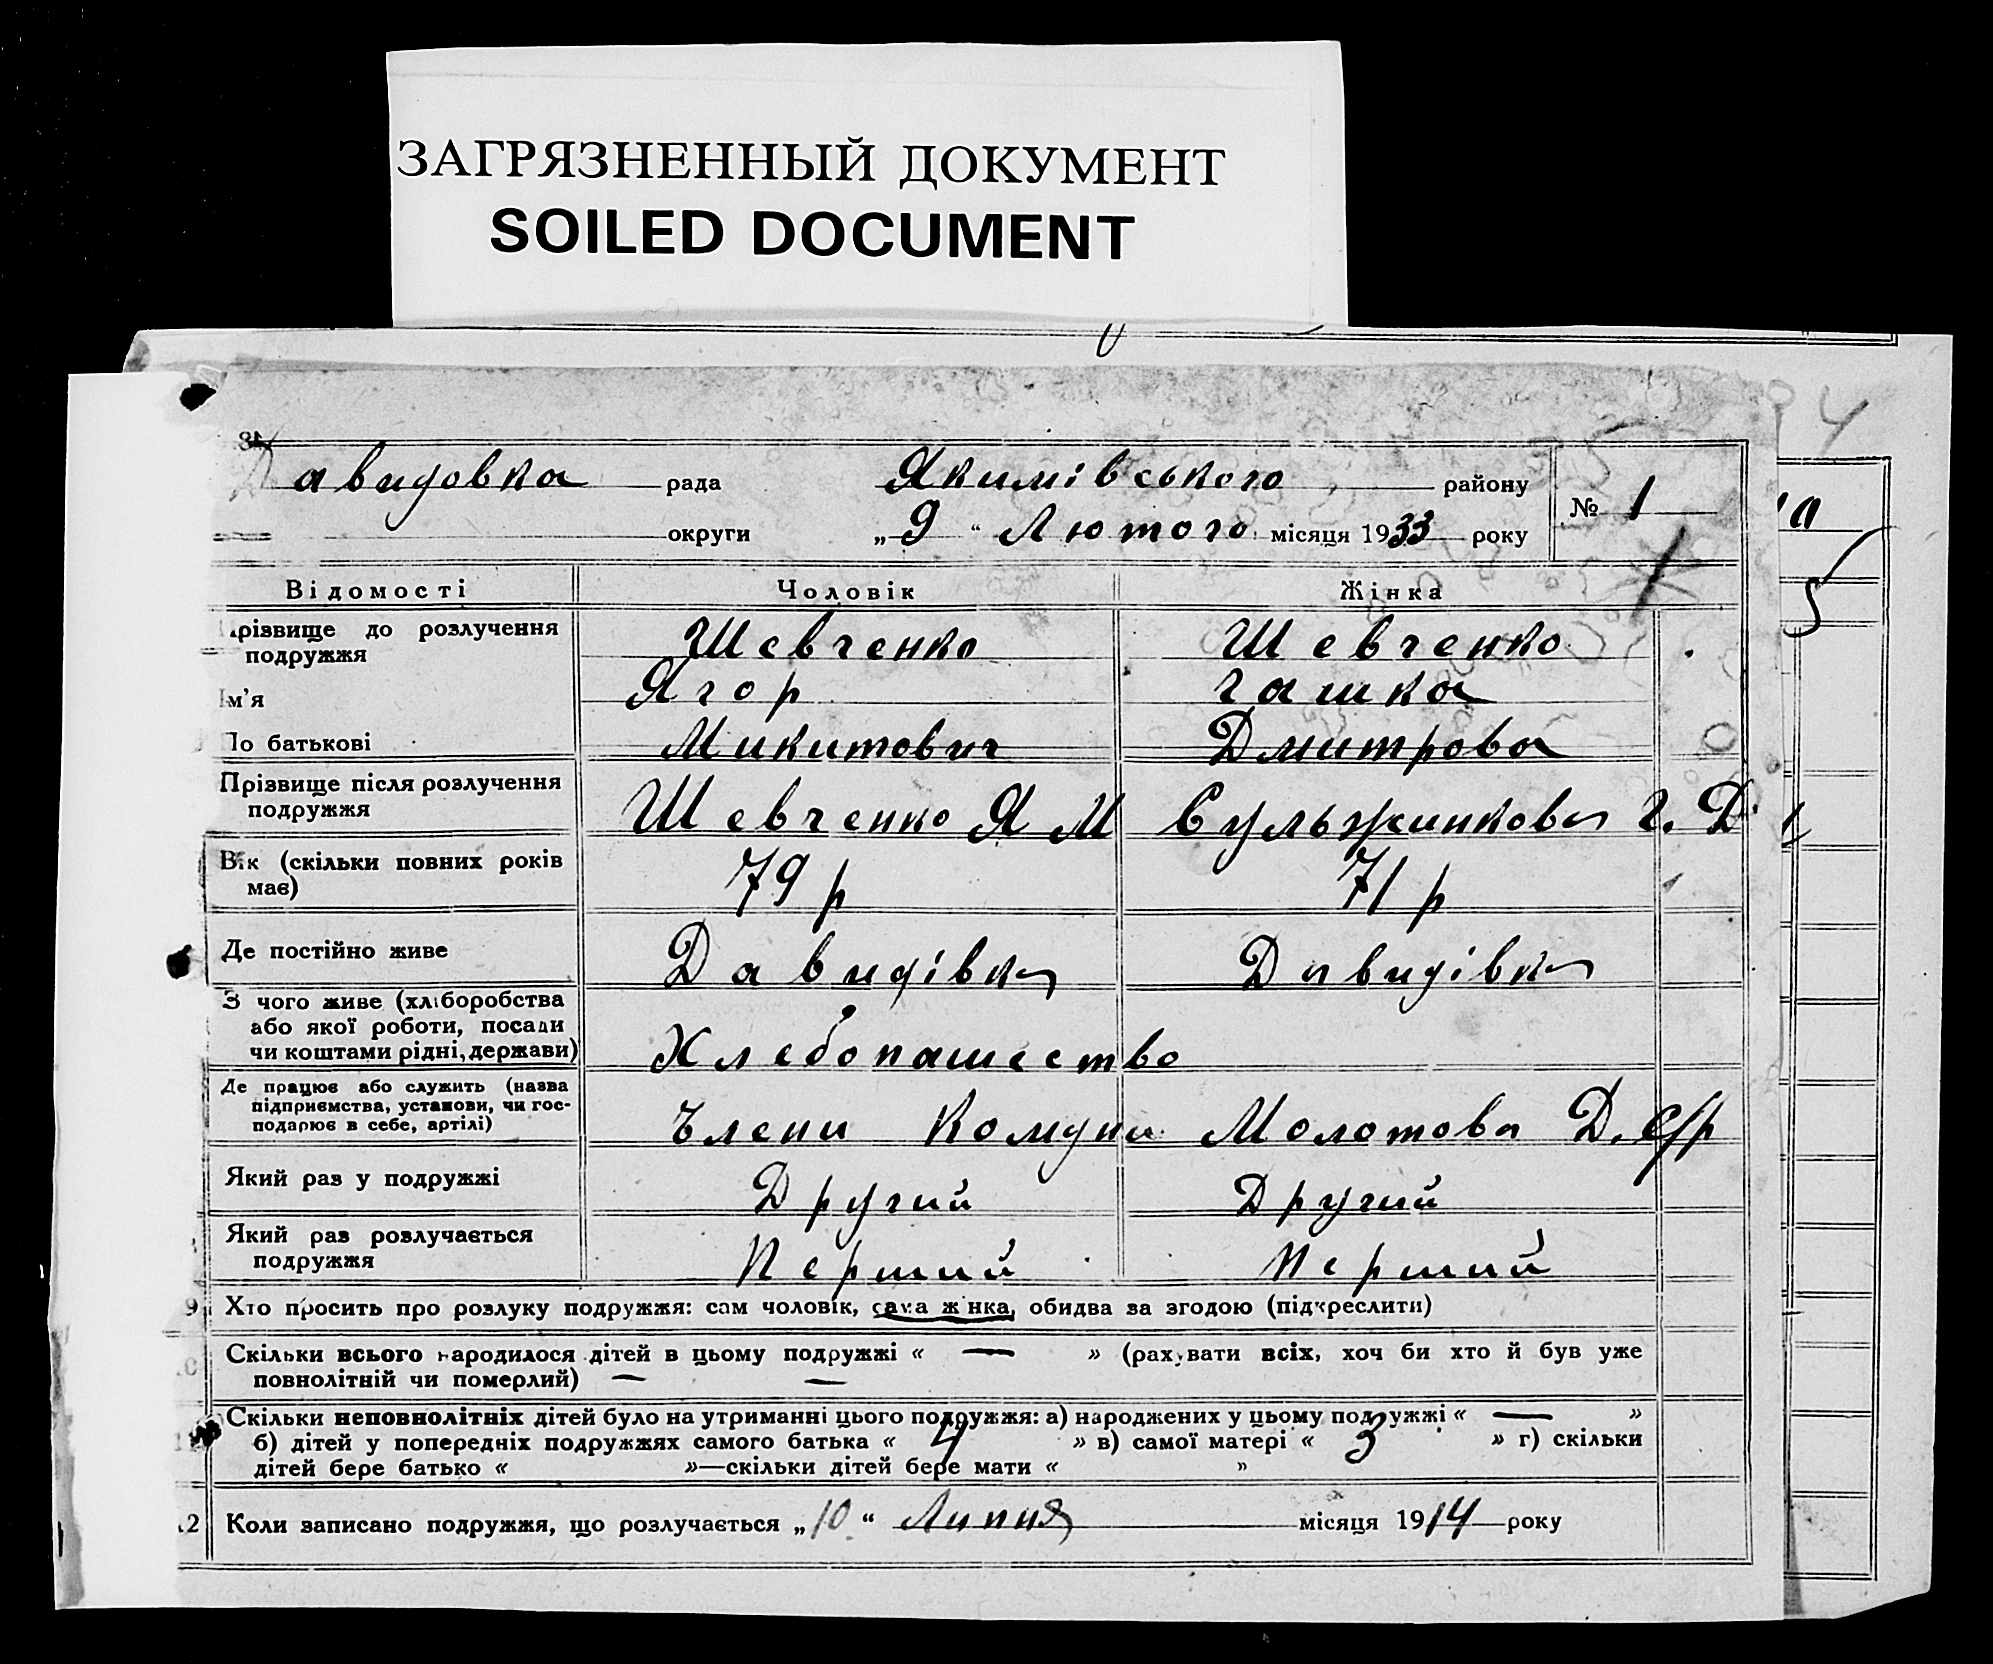 ЗАГРЯЗНЕННЫЙ ДОКУМЕНТ
SOILED DOCUMENT
4
Давидовка рада Якимівського району № 1
округи „ 9 “ Лютого місяця 1933 року
Відомості Чоловік Жінка
Прізвище до розлучення подружжя Шевченко Шевченко
Ім'я Ягор Гашка
По батькові Микитович Дмитрова
Прізвище після розлучення подружжя Шевченко Я М Сульжинкова Г. Д.
Вік (скільки повних років має) 79 р 71 р
Де постійно живе Давидівка Давидівка
З чого живе (хліборобства або якої роботи, посади чи коштами рідні, держави) Хлебопашество
Де працює або служить (назва підприємства, установи, чи господарює в себе, артілі) Члени Комуни Молотова Д. С/р
Який раз у подружжі Другий Другий
Який раз розлучається подружжя Перший Перший
9 Хто просить про розлуку подружжя: сам чоловік, сама жінка, обидва за згодою (підкреслити)
Скільки всього народилося дітей в цьому подружжі « — » (рахувати всіх, хоч би хто й був уже
повнолітній чи померлий) — —
Скільки неповнолітніх дітей було на утриманні цього подружжя: а) народжених у цьому подружжі « — »
б) дітей у попередніх подружжях самого батька « 4 » в) самої матері « 3 » г) скільки
дітей бере батько « »—скільки дітей бере мати « »
12 Коли записано подружжя, що розлучається „ 10 “ Липня місяця 1914 року